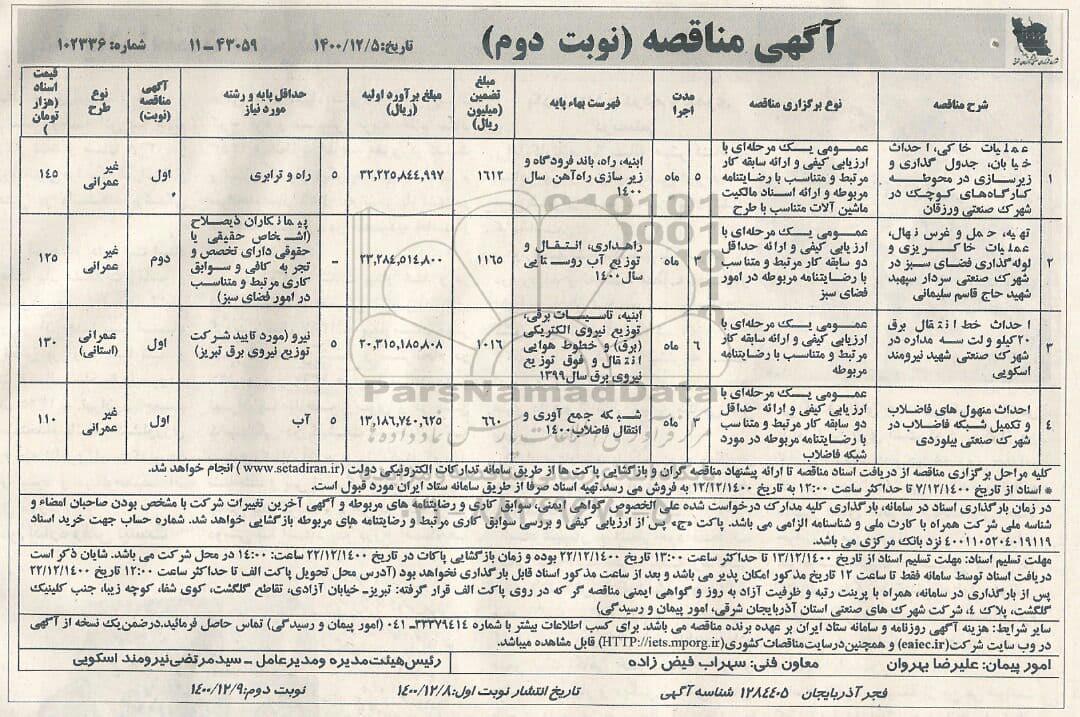 آگهی مناقصه (نوبت دوم)
تاریخ: ۱۴۰۰/۱۲/۵
۱۱-۴۳۰۵۹
شماره: ۱۰۲۳۳۶
شرح مناقصه
نوع برگزاری مناقصه
مدت اجرا
فهرست بهاء پایه
مبلغ تضمین (میلیون ریال)
مبلغ برآورد اولیه (ریال)
حداقل پایه و رشته مورد نیاز
آگهی مناقصه (نوبت)
نوع طرح
قیمت اسناد (هزار تومان)
۱
عملیات خاکی، احداث خیابان، جدول گذاری و زیرسازی در محوطه کارگاه‌های کوچک در شهرک صنعتی ورزقان
عمومی یک مرحله‌ای با ارزیابی کیفی و ارائه سابقه کار مرتبط و متناسب با رضایتنامه مربوطه و ارائه اسناد مالکیت ماشین آلات متناسب با طرح
۵ ماه
ابنیه، راه، باند فرودگاه و زیر سازی راه‌آهن سال ۱۴۰۰
۱۶۱۲
۳۲,۲۲۵,۸۴۴,۹۹۷
۵ راه و ترابری
اول
غیر عمرانی
۱۴۵
۲
تهیه، حمل و غرس نهال، عملیات خاکریزی و لوله‌گذاری فضای سبز در شهرک صنعتی سردار سپهبد شهید حاج قاسم سلیمانی
عمومی یک مرحله‌ای با ارزیابی کیفی و ارائه حداقل دو سابقه کار مرتبط و متناسب با رضایتنامه مربوطه در امور فضای سبز
۳ ماه
راهداری، انتقال و توزیع آب روستایی سال ۱۴۰۰
۱۱۶۵
۲۳,۲۸۴,۵۱۴,۸۰۰
- پیمانکاران ذیصلاح (اشخاص حقیقی یا حقوقی دارای تخصص و تجربه کافی و سوابق کاری مرتبط و متناسب در امور فضای سبز)
دوم
غیر عمرانی
۱۲۵
۳
احداث خط انتقال برق ۲۰کیلو ولت سه مداره در شهرک صنعتی شهید نیرومند اسکویی
عمومی یک مرحله‌ای با ارزیابی کیفی و ارائه سابقه کار مرتبط و متناسب با رضایتنامه مربوطه
۶ ماه
ابنیه، تاسیسات برقی، توزیع نیروی الکتریکی (برق) و خطوط هوایی انتقال و فوق توزیع نیروی برق سال ۱۳۹۹
۱۰۱۶
۲۰,۳۱۵,۱۸۵,۸۰۸
۵ نیرو (مورد تایید شرکت توزیع نیروی برق تبریز)
اول
عمرانی (استانی)
۱۳۰
۴
احداث منهول های فاضلاب و تکمیل شبکه فاضلاب در شهرک صنعتی بیلوردی
عمومی یک مرحله‌ای با ارزیابی کیفی و ارائه حداقل دو سابقه کار مرتبط و متناسب با رضایتنامه مربوطه در مورد شبکه فاضلاب
۳ ماه
شبکه جمع آوری و انتقال فاضلاب ۱۴۰۰
۶۶۰
۱۳,۱۸۶,۷۴۰,۶۲۵
۵ آب
اول
غیر عمرانی
۱۱۰
کلیه مراحل برگزاری مناقصه از دریافت اسناد مناقصه تا ارائه پیشنهاد مناقصه گران و بازگشایی پاکت ها از طریق سامانه تدارکات الکترونیکی دولت (www.setadiran.ir) انجام خواهد شد.
* اسناد از تاریخ ۷/۱۲/۱۴۰۰ تا حداکثر ساعت ۱۲:۰۰ به تاریخ ۱۲/۱۲/۱۴۰۰ به فروش می رسد. تهیه اسناد صرفا از طریق سامانه ستاد ایران مورد قبول است.
در زمان بارگذاری اسناد در سامانه، بارگذاری کلیه مدارک درخواست شده علی الخصوص گواهی ایمنی، سوابق کاری و رضایتنامه های مربوطه و آگهی آخرین تغییرات شرکت با مشخص بودن صاحبان امضاء و
شناسه ملی شرکت همراه با کارت ملی و شناسنامه الزامی می باشد. پاکت «ج» پس از ارزیابی کیفی و بررسی سوابق کاری مرتبط و رضایتنامه های مربوطه بازگشایی خواهد شد. شماره حساب جهت خرید اسناد
۴۰۰۱۱۰۵۲۰۴۰۱۹۱۱۹ نزد بانک مرکزی می باشد.
مهلت تسلیم اسناد: مهلت تسلیم اسناد از تاریخ ۱۳/۱۲/۱۴۰۰ تا حداکثر ساعت ۱۳:۰۰ تاریخ ۲۲/۱۲/۱۴۰۰ بوده و زمان بازگشایی پاکات در تاریخ ۲۲/۱۲/۱۴۰۰ ساعت: ۱۴:۰۰ در محل شرکت می باشد. شایان ذکر است
دریافت اسناد توسط سامانه فقط تا ساعت ۱۲ تاریخ مذکور امکان پذیر می باشد و بعد از ساعت مذکور اسناد قابل بارگذاری نخواهد بود (آدرس محل تحویل پاکت الف تا حداکثر ساعت ۱۲:۰۰ تاریخ ۲۲/۱۲/۱۴۰۰
پس از بارگذاری در سامانه، همراه با پرینت رتبه و ظرفیت آزاد به روز و گواهی ایمنی مناقصه گر که در روی پاکت الف قرار گرفته: تبریز- خیابان آزادی، تقاطع گلگشت، کوی شفا، کوچه زیبا، جنب کلینیک
گلگشت، پلاک ۴، شرکت شهرک های صنعتی استان آذربایجان شرقی، امور پیمان و رسیدگی)
سایر شرایط: هزینه آگهی روزنامه و سامانه ستاد ایران بر عهده برنده مناقصه می باشد. برای کسب اطلاعات بیشتر با شماره ۳۳۳۷۹۴۱۴-۰۴۱ (امور پیمان و رسیدگی) تماس حاصل فرمائید. درضمن یک نسخه از آگهی
در وب سایت شرکت (eaiec.ir) و همچنین درسایت مناقصات کشوری (HTTP://iets.mporg.ir) قابل مشاهده میباشد.
امور پیمان: علیرضا بهروان
معاون فنی: سهراب فیض زاده
رئیس هیئت مدیره و مدیرعامل - سید مرتضی نیرومند اسکویی
فجر آذربایجان
۱۲۸۴۴۰۵ شناسه آگهی
تاریخ انتشار نوبت اول: ۱۴۰۰/۱۲/۸
نوبت دوم: ۱۴۰۰/۱۲/۹
ParsNamadData